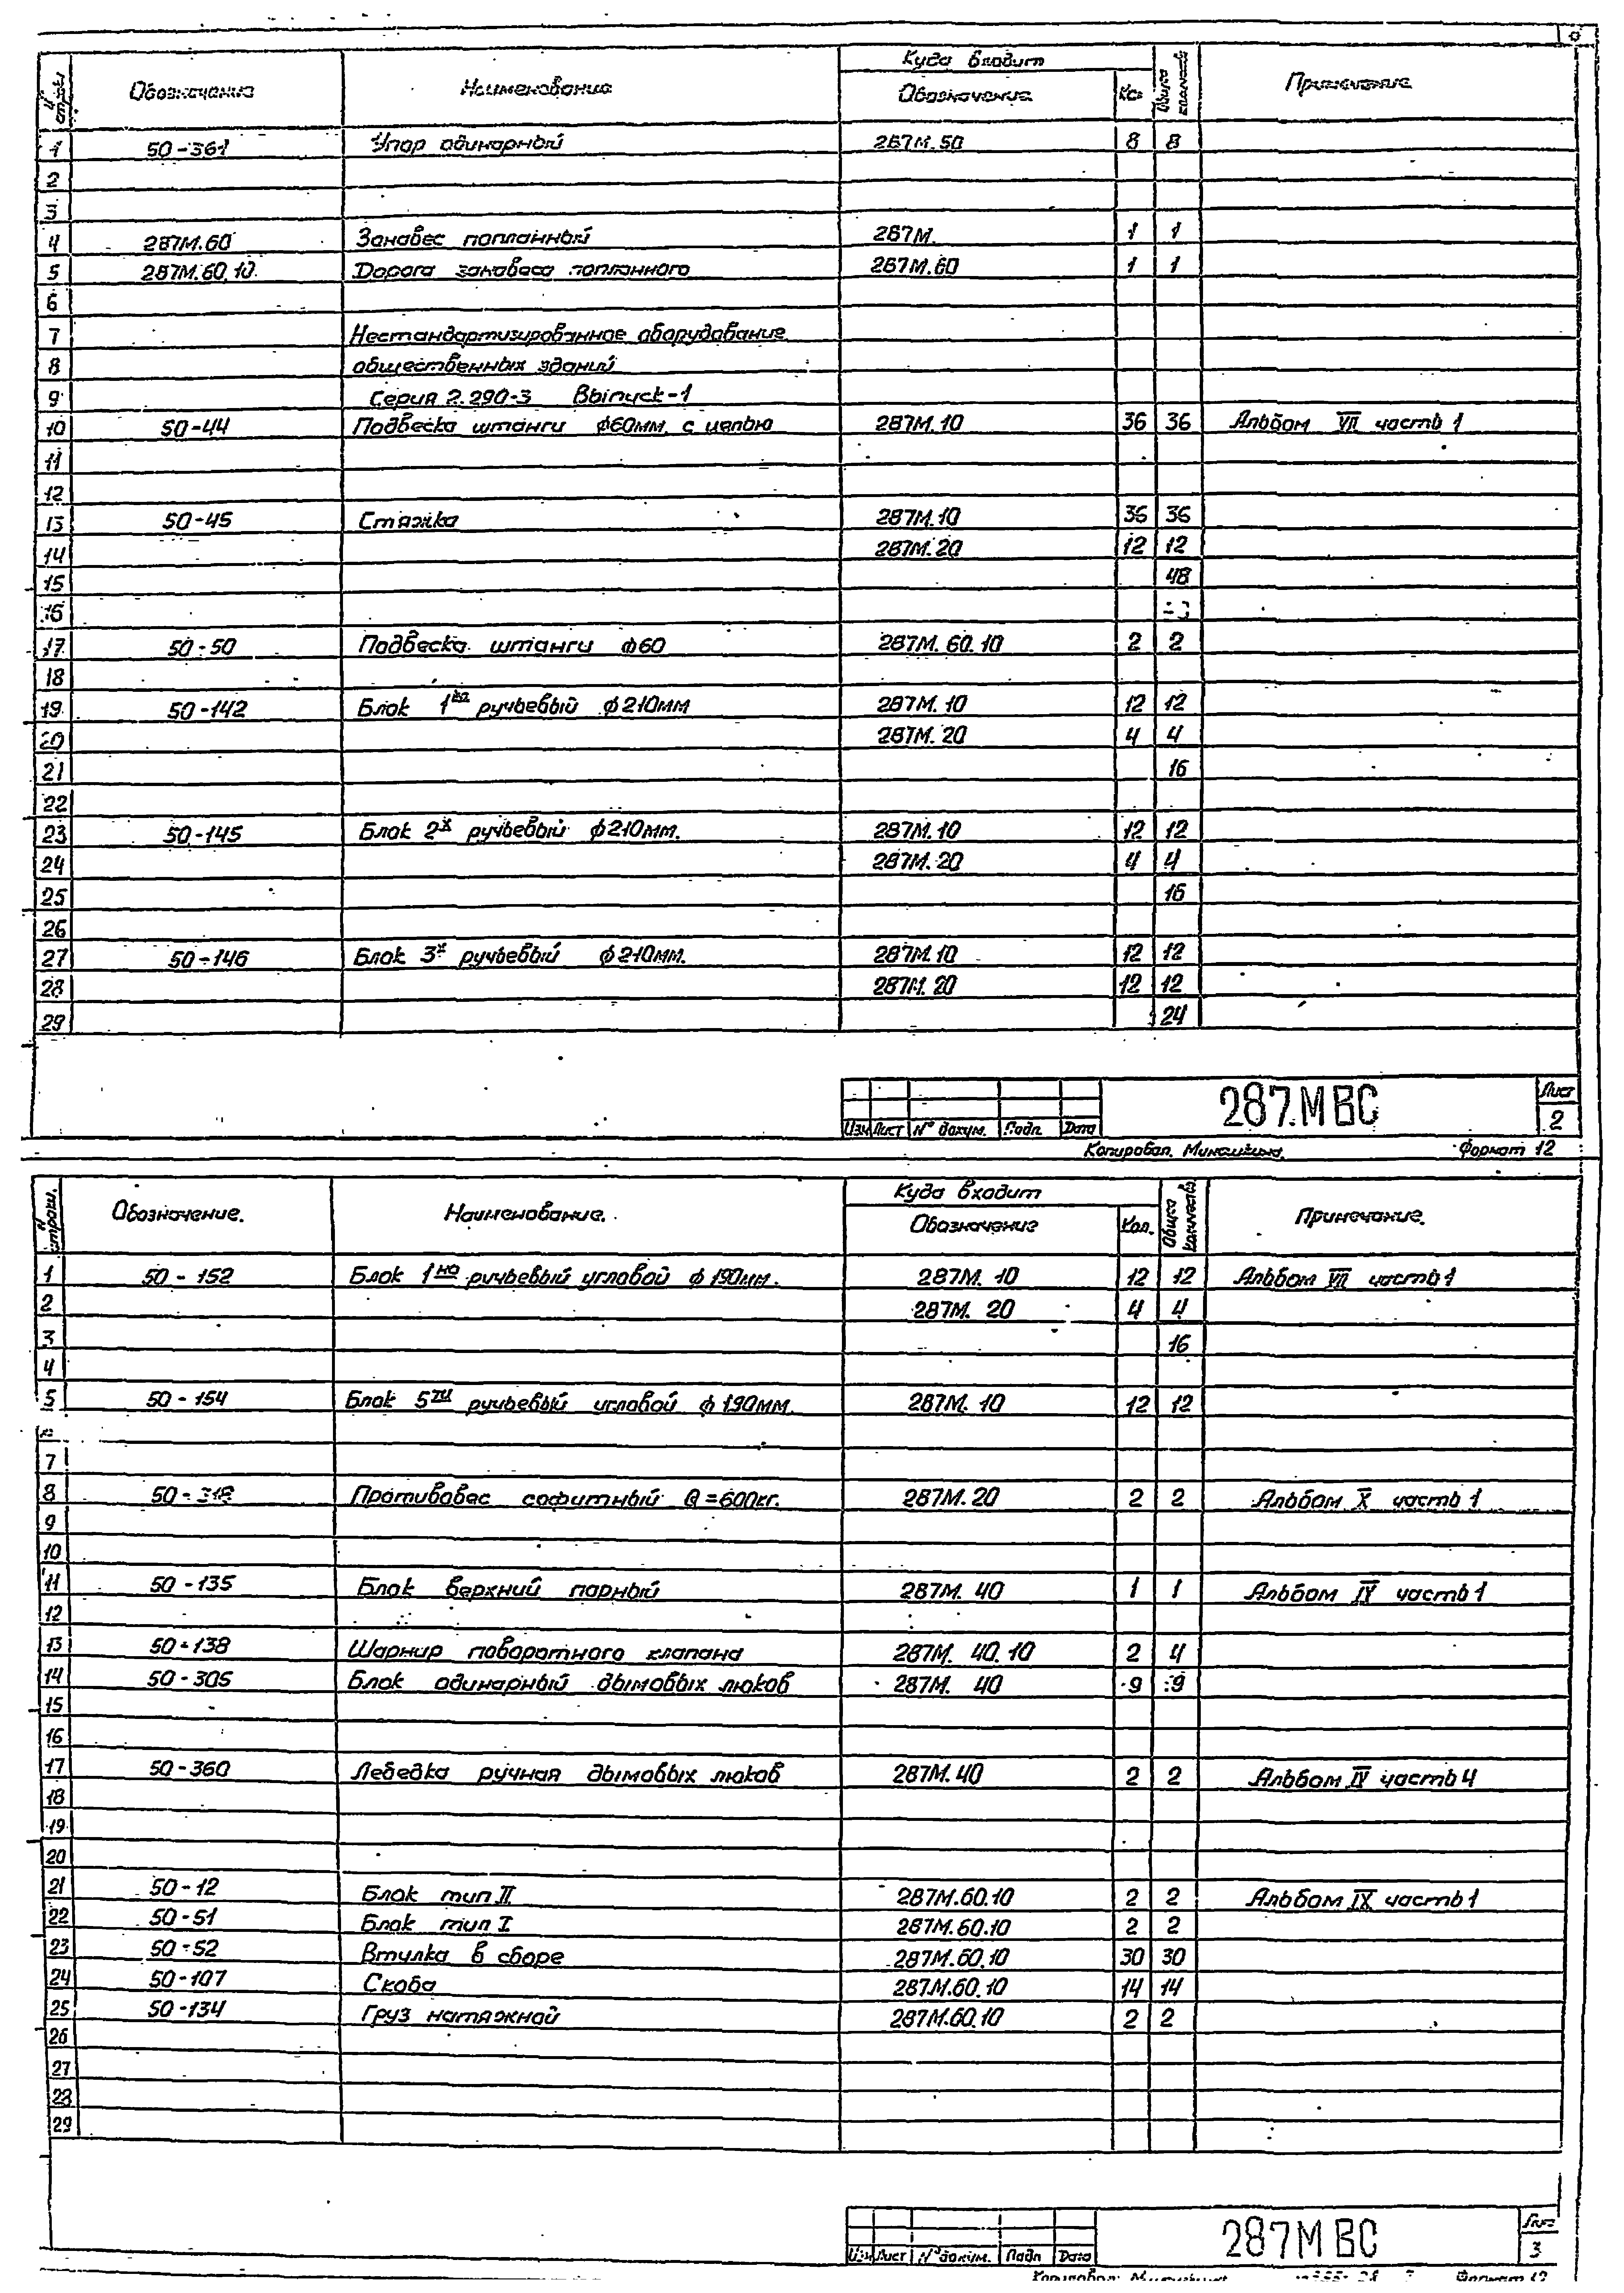 Обозначение Наименование Куда входит Примечание
Обозначение
1 50-361 Упор одинарный 287М.50 8 8
2
3
4 287М.60 Занавес попланный 287М. 1 1
5 287М.60.10. Дорога занавеса попланного 287М.60 1 1
6
7 Нестандартизированное оборудование
8 общественных зданий
9 Серия 2.290-3 Выпуск-1
10 50-44 Подвеска штанги ф60мм. с цепью 287М.10 36 36 Альбом VII часть 1
11
12
13 50-45 Стяжка 287М.10 36 36
14 287М.20 12 12
15 48
16
17 50-50 Подвеска штанги ф60 287М.60.10 2 2
18
19 50-142 Блок 1но ручьевый ф210мм 287М.10 12 12
20 287М.20 4 4
21 16
22
23 50-145 Блок 2х ручьевый ф210мм. 287М.10 12 12
24 287М.20 4 4
25 16
26
27 50-146 Блок 3х ручьевый ф210мм. 287М.10 12 12
28 287М.20 12 12
29 24
287.М ВС Лист
2
Изм Лист № докум. Подп. Дата
Копировал. Формат 12
N строк. Обозначение. Наименование. Куда входит Общее количество Примечание.
Обозначение Кол.
1 50-152 Блок 1но ручьевый угловой ф190мм. 287М.10 12 12 Альбом VII часть 1
2 287М.20 4 4
3 16
4
5 50-154 Блок 5ти ручьевый угловой ф190мм. 287М.10 12 12
7
8 50-318 Противовес софитный Q=600кг. 287М.20 2 2 Альбом X часть 1
9
10
11 50-135 Блок верхний парный 287М.40 1 1 Альбом IV часть 1
12
13 50-138 Шарнир поворотного клапана 287М.40.10 2 4
14 50-305 Блок одинарный дымовых люков 287М.40 9 9
15
16
17 50-360 Лебедка ручная дымовых люков 287М.40 2 2 Альбом IV часть 4
18
19
20
21 50-12 Блок тип II 287М.60.10 2 2 Альбом IX часть 1
22 50-51 Блок тип I 287М.60.10 2 2
23 50-52 Втулка в сборе 287М.60.10 30 30
24 50-107 Скоба 287М.60.10 14 14
25 50-134 Груз натяжной 287М.60.10 2 2
26
27
28
29
287М ВС
3
Изм Лист № докум. Подп Дата
Формат 12